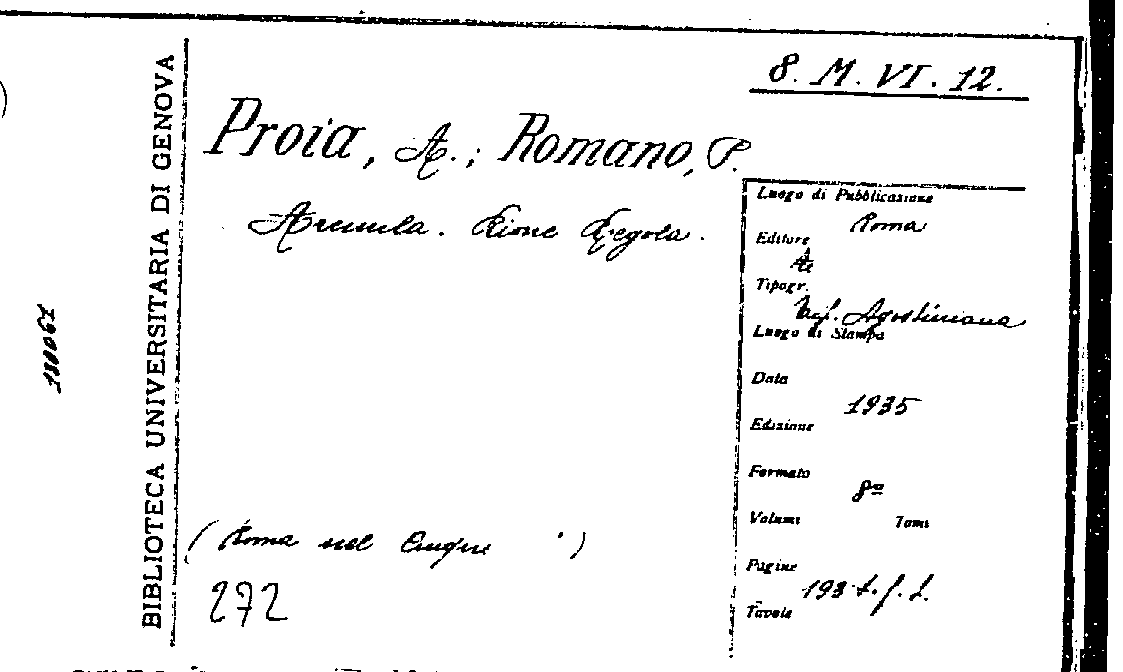 8. M. VI. 12.
Proia, A.; Romano, P.
Arenula. Rione Regola.
Luogo di Pubblicazione
Roma
Editore
Tipogr.
Agostiniana
Luogo di Stampa
Data
1935
Edizione
Formato
8º
Volumi Tomi
Pagine
193
Tavole
(Roma nel )
272
BIBLIOTECA UNIVERSITARIA DI GENOVA